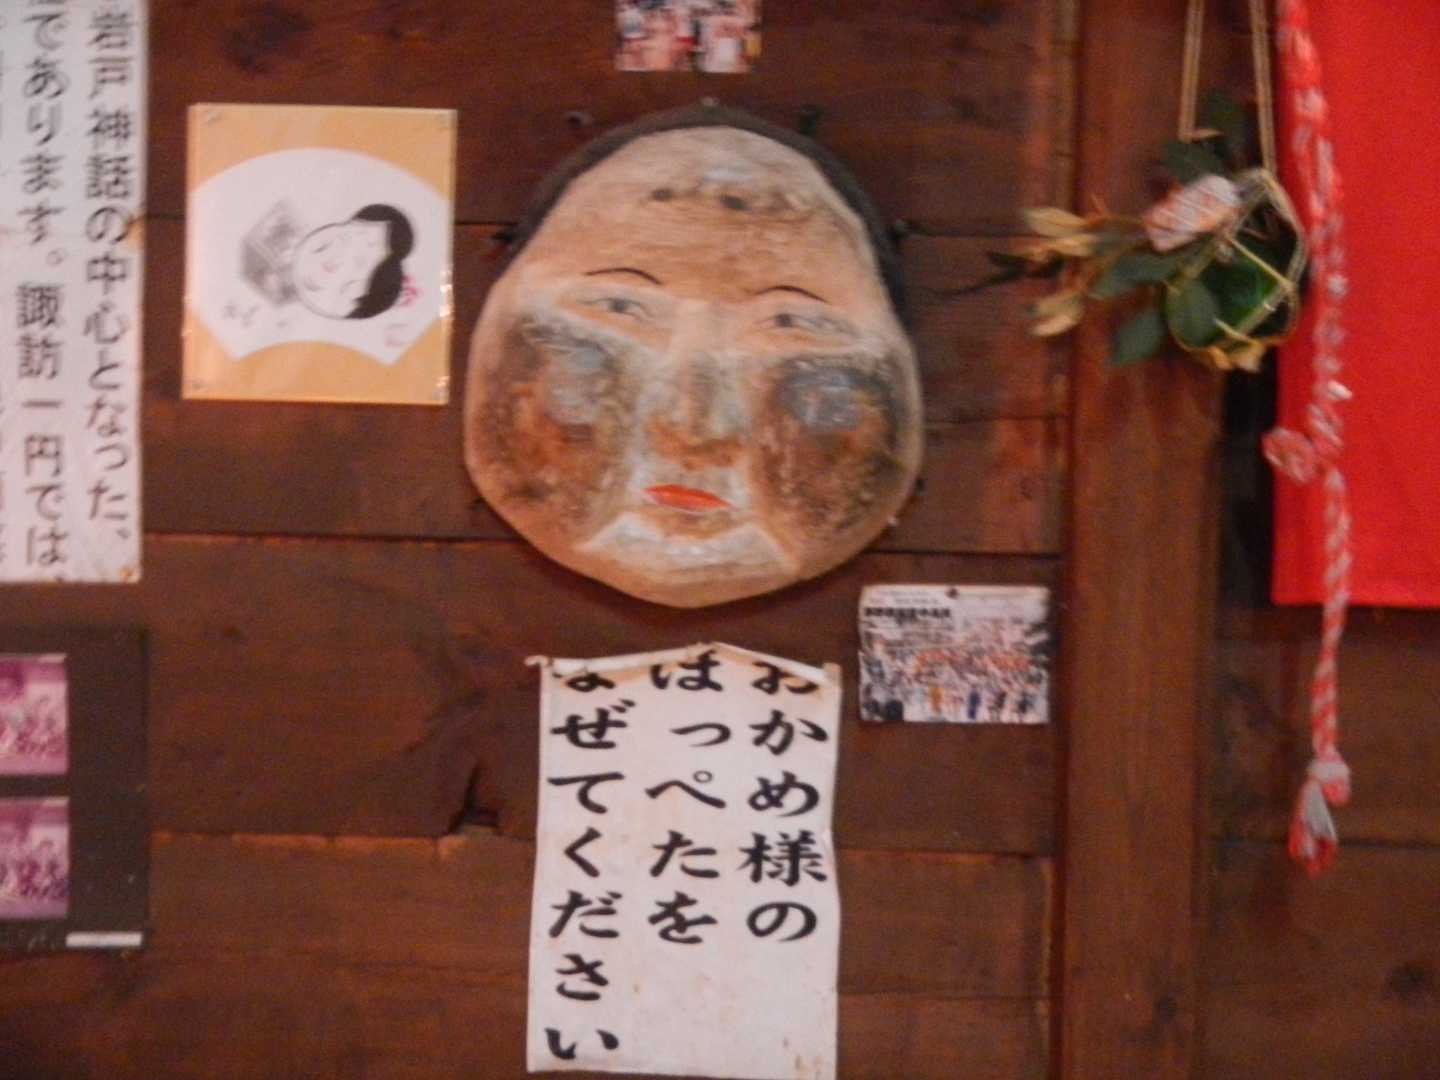 おかめ様の
ほっぺたを
なぜてください
岩戸神話の中心となった、
であります。諏訪一円では、